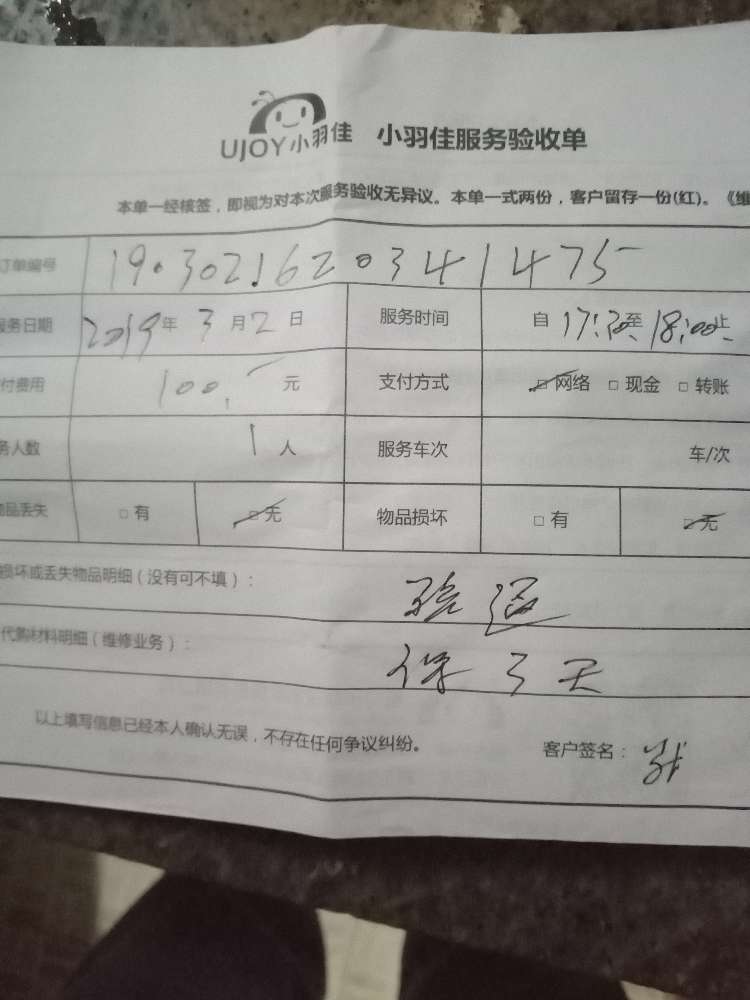 UJOY小羽佳 小羽佳服务验收单
本单一经核签，即视为对本次服务验收无异议。本单一式两份，客户留存一份(红)。《维
订单编号 1903021620341475
服务日期 2019年3月2日 服务时间 自17:30至18:00止
付费用 100.- 元 支付方式 □网络 □现金 □转账
务人数 1人 服务车次 车/次
物品丢失 □有 □无 物品损坏 □有 □无
损坏或丢失物品明细（没有可不填）：
代购材料明细（维修业务）：
保3天
以上填写信息已经本人确认无误，不存在任何争议纠纷。 客户签名：